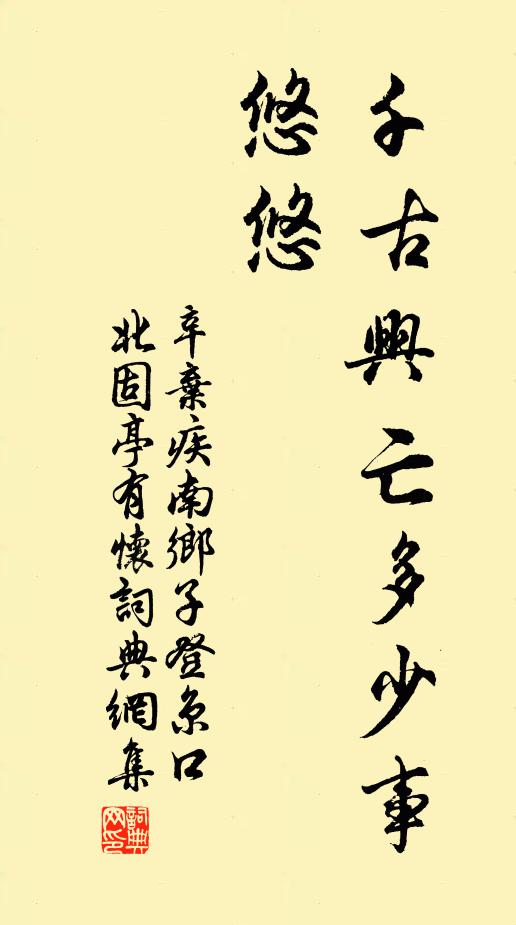 千古興亡多少事
悠悠
辛棄疾南鄉子登京口
北固亭有懷詞典網集
詞典網印